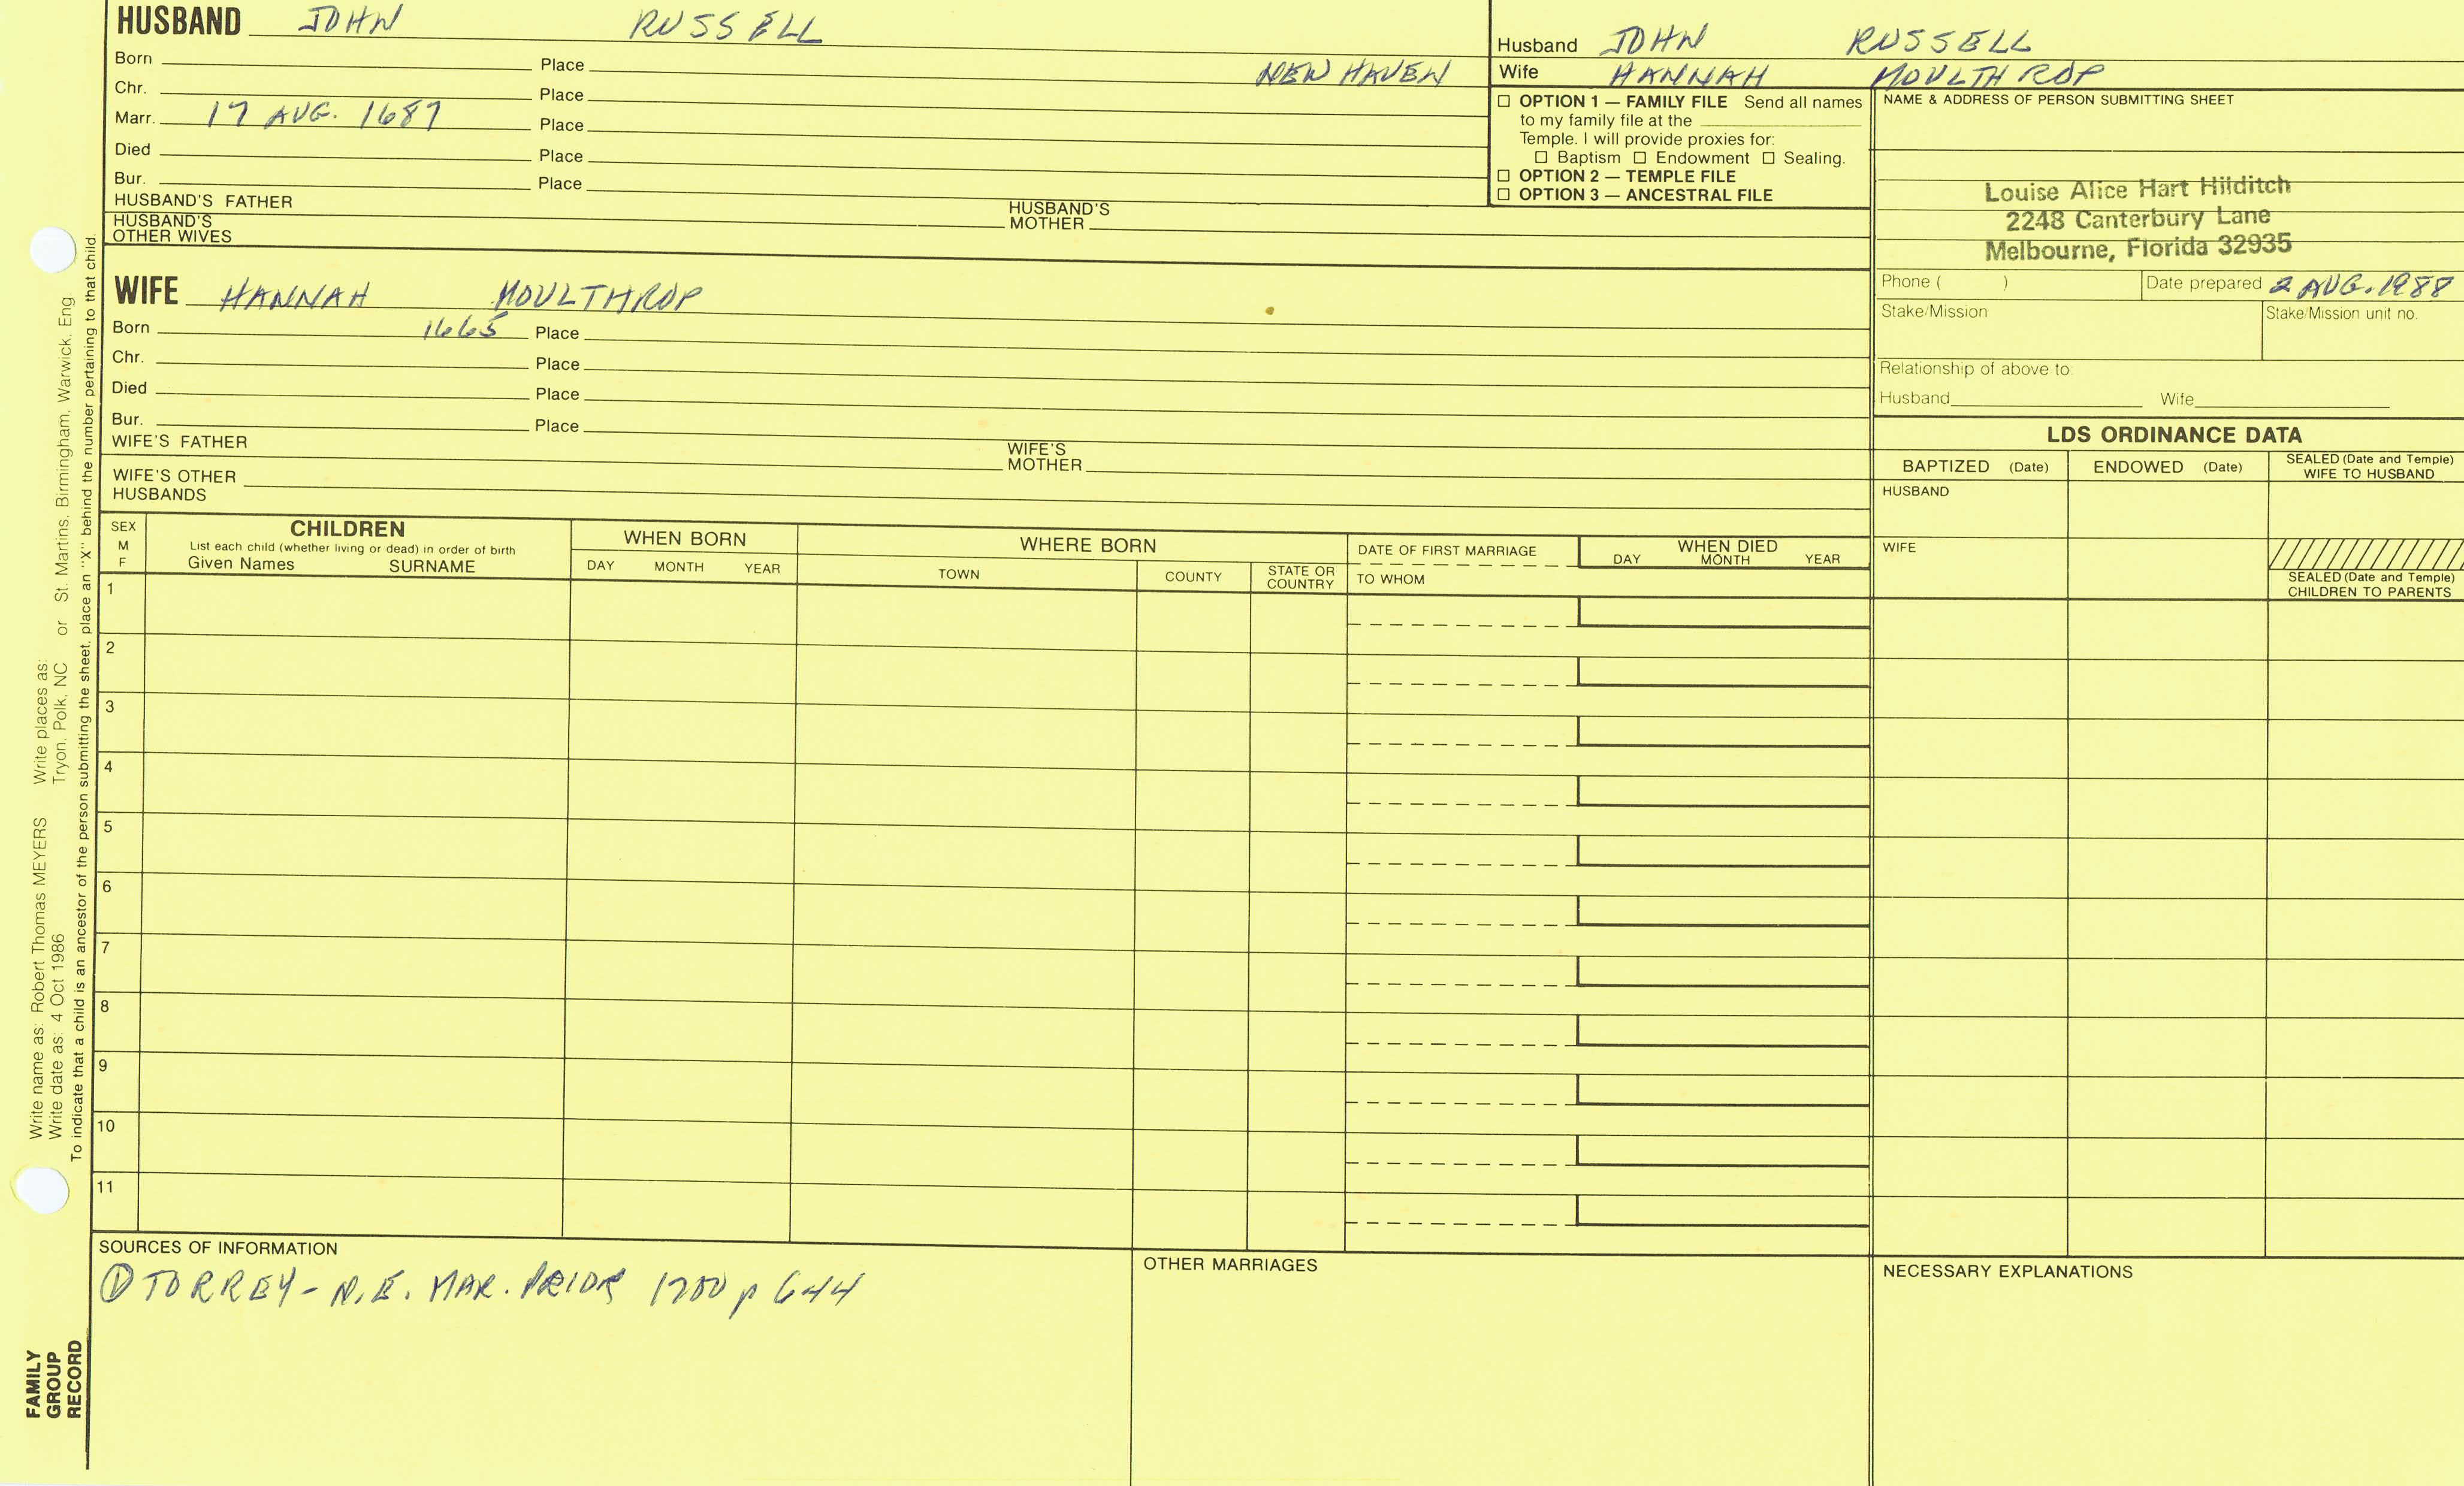 HUSBAND JOHN RUSSELL
Born Place NEW HAVEN
Chr. Place
Marr. 17 AUG. 1687 Place
Died Place
Bur. Place
HUSBAND'S FATHER HUSBAND'S MOTHER
HUSBAND'S OTHER WIVES
Husband JOHN RUSSELL
Wife HANNAH MOULTHROP
☐ OPTION 1 — FAMILY FILE Send all names
to my family file at the
Temple. I will provide proxies for:
☐ Baptism ☐ Endowment ☐ Sealing.
☐ OPTION 2 — TEMPLE FILE
☐ OPTION 3 — ANCESTRAL FILE
NAME & ADDRESS OF PERSON SUBMITTING SHEET
Louise Alice Hart Hilditch
2248 Canterbury Lane
Melbourne, Florida 32935
Phone ( ) Date prepared 2 AUG. 1988
Stake/Mission Stake/Mission unit no.
Relationship of above to:
Husband Wife
WIFE HANNAH MOULTHROP
Born 1665 Place
Chr. Place
Died Place
Bur. Place
WIFE'S FATHER WIFE'S MOTHER
WIFE'S OTHER HUSBANDS
LDS ORDINANCE DATA
BAPTIZED (Date) ENDOWED (Date) SEALED (Date and Temple) WIFE TO HUSBAND
HUSBAND
WIFE
SEALED (Date and Temple)
CHILDREN TO PARENTS
SEX
M
F
CHILDREN
List each child (whether living or dead) in order of birth
Given Names SURNAME
WHEN BORN
DAY MONTH YEAR
WHERE BORN
TOWN COUNTY STATE OR COUNTRY
DATE OF FIRST MARRIAGE
TO WHOM
WHEN DIED
DAY MONTH YEAR
1
2
3
4
5
6
7
8
9
10
11
SOURCES OF INFORMATION
① TORREY - N.E. MAR. PRIOR 1700 p 644
OTHER MARRIAGES
NECESSARY EXPLANATIONS
Write name as: Robert Thomas MEYERS Write places as:
Write date as: 4 Oct 1986 Tryon, Polk, NC or St. Martins, Birmingham, Warwick, Eng.
To indicate that a child is an ancestor of the person submitting the sheet, place an "X" behind the number pertaining to that child.
FAMILY
GROUP
RECORD